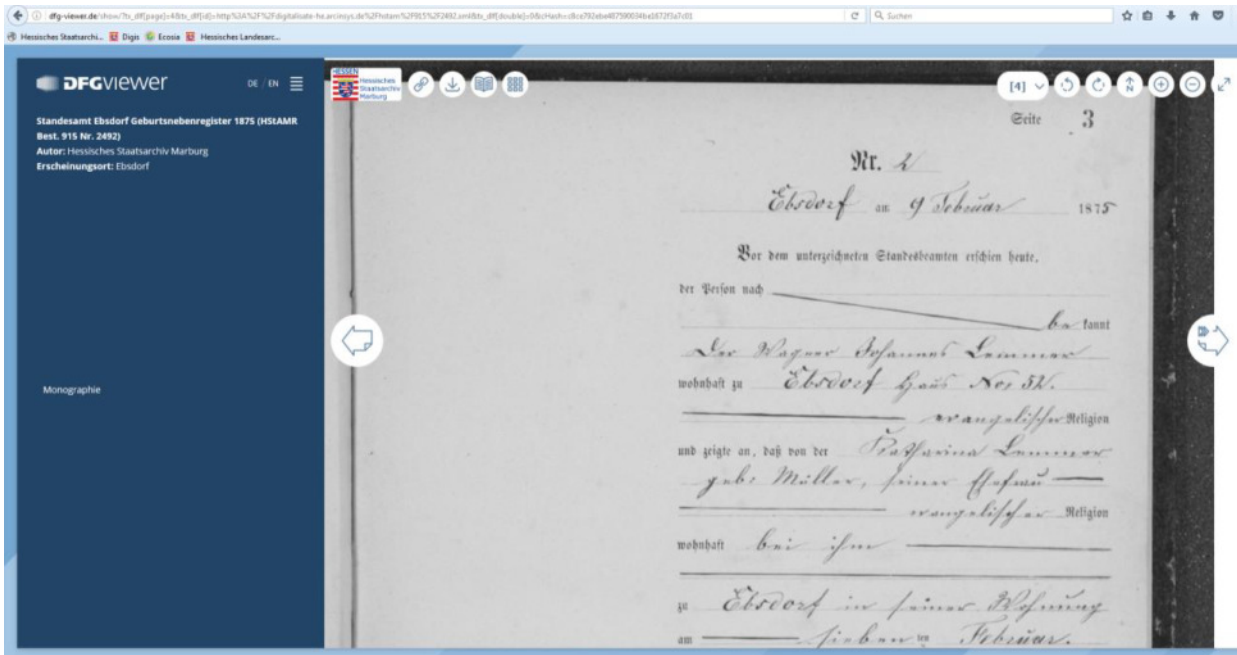 dfg-viewer.de/show/?tx_dlf[page]=4&tx_dlf[id]=http%3A%2F%2Fdigitalisate-he.arcinsys.de%2Fhstam%2F915%2F2492.xml&tx_dlf[double]=0&cHash=
Suchen
Hessisches Staatsarchi... Digis Ecosia Hessisches Landesarc...
DFGVIEWER
DE / EN
Standesamt Ebsdorf Geburtsnebenregister 1875 (HStAMR
Best. 915 Nr. 2492)
Autor: Hessisches Staatsarchiv Marburg
Erscheinungsort: Ebsdorf
Monographie
HESSEN
Hessisches
Staatsarchiv
Marburg
[4]
Seite 3
Nr. 2
Ebsdorf am 9 Februar 1875
Vor dem unterzeichneten Standesbeamten erschien heute,
der Person nach
be kannt
Der Wagner Johannes Lemmer
wohnhaft zu Ebsdorf Haus No: 52.
evangelischer Religion
und zeigte an, daß von der Katharina Lemmer
geb: Müller, seiner Ehefrau
evangelischer Religion
wohnhaft bei ihm
zu Ebsdorf in seiner Wohnung
am sieben ten Februar.